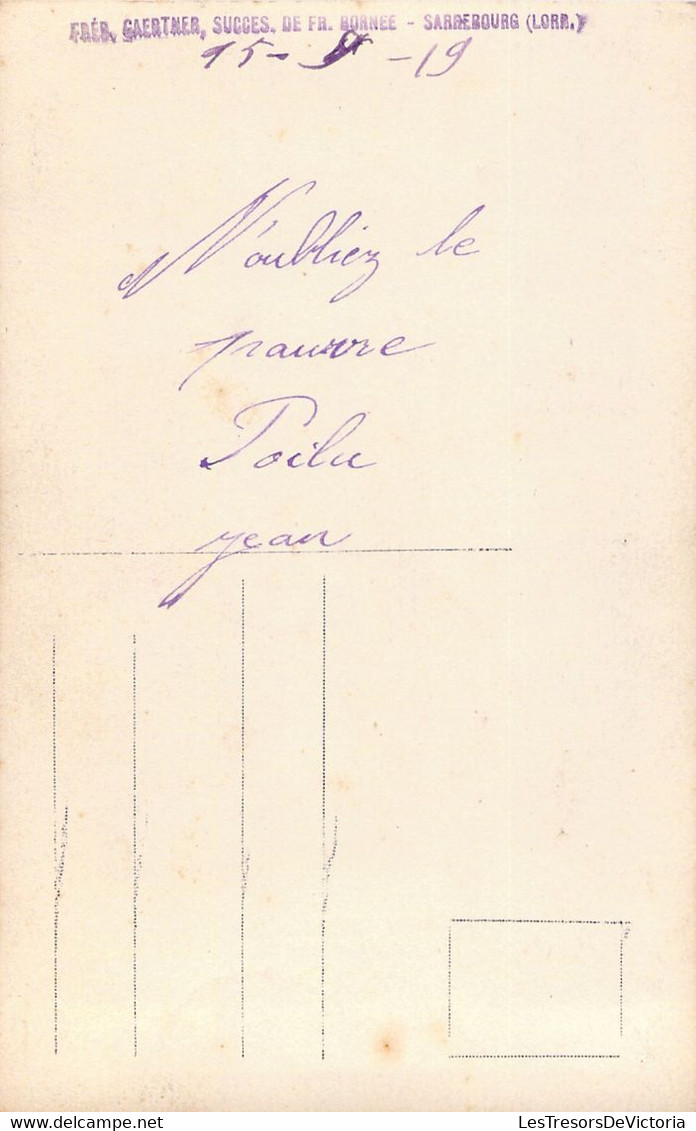 FRÉD. GAERTNER, SUCCES. DE FR. BORNEE - SARREBOURG (LORR.)
15- -19
N'oubliez le
pauvre
Poilu
Jean
LesTresorsDeVictoria